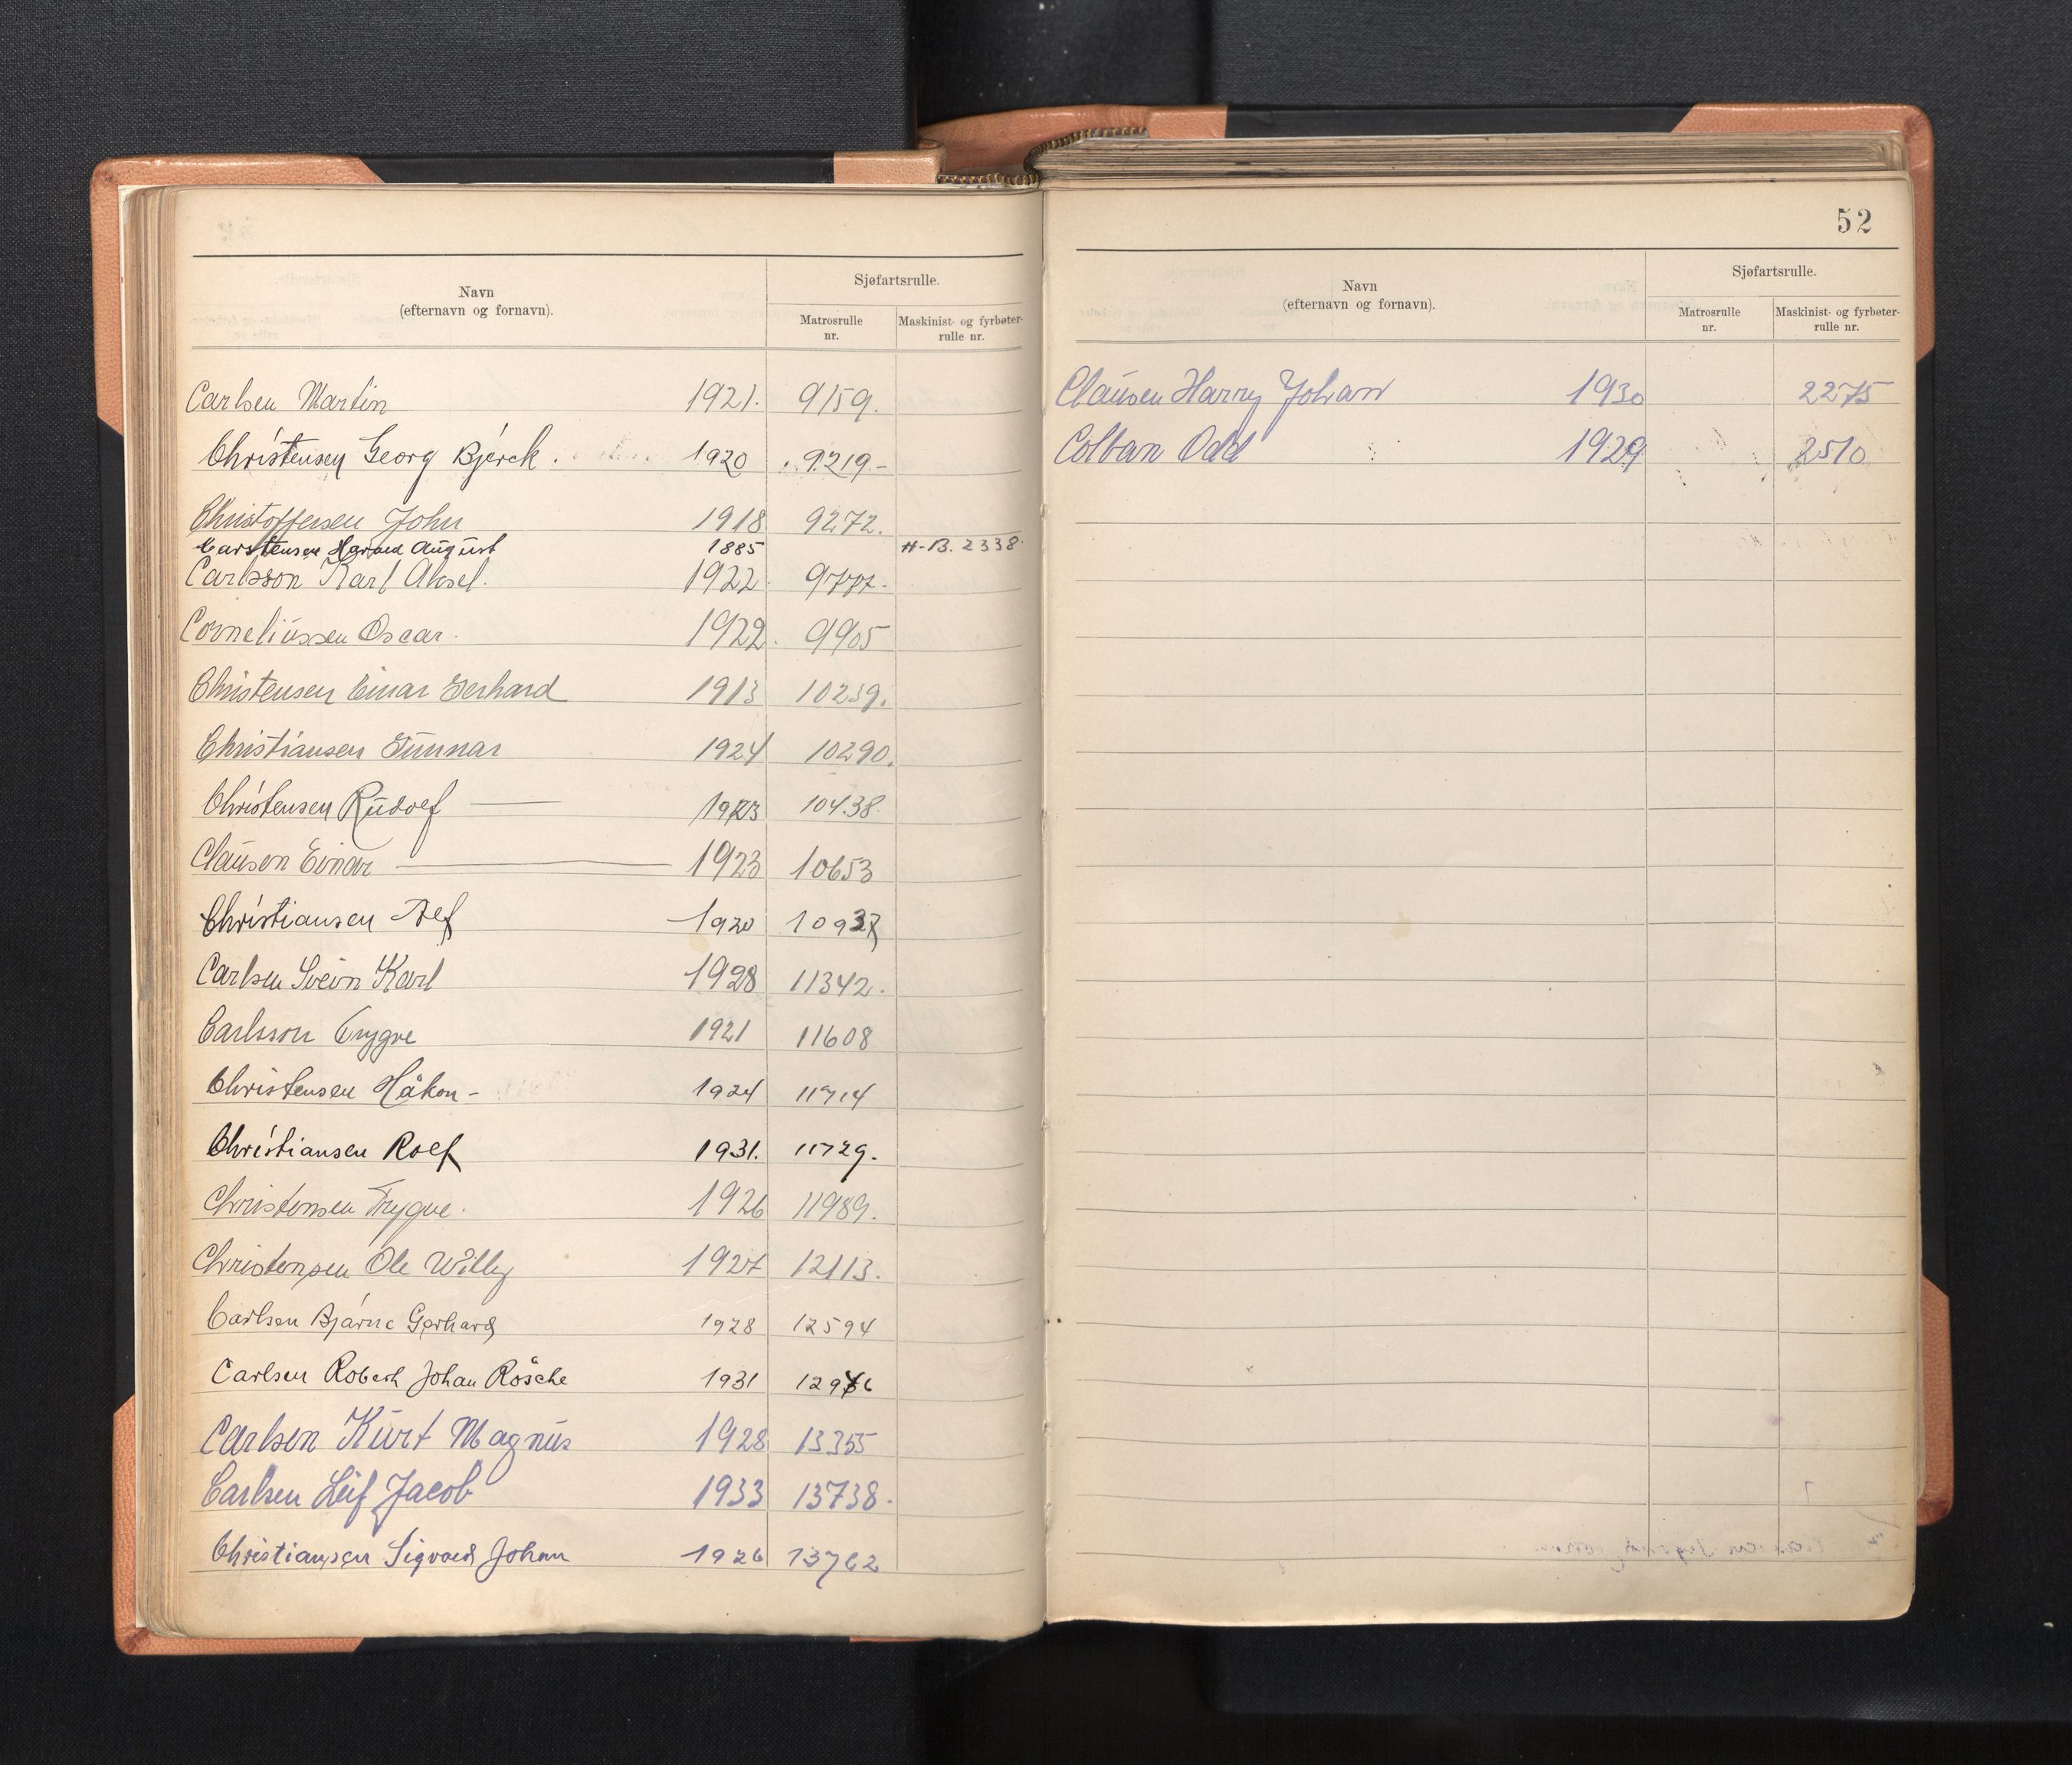 Navn
(efternavn og fornavn).
Sjøfartsrulle.
Matrosrulle nr.
Maskinist- og fyrbøter-rulle nr.
Carlsen Martin 1921. 9159.
Christensen Georg Bjerck. 1920 9219.-
Christoffersen John 1918 9272.
Carstensen Harald August 1885 H-B. 2338.
Carlsson Karl Aksel. 1922
Corneliussen Oscar. 1922. 9905
Christensen Einar Gerhard 1913 10239.
Christiansen Gunnar 1924 10290.
Christensen Rudolf — 10438.
Clausen Einar — 1923 10653
Christiansen Alf 1920
Carlsen Svein Karl 1928 11342.
Carlsson Trygve 1921 11608
Christensen Håkon - 1924 11714
Christiansen Rolf 1931. 11729.
Christensen Trygve. 1926 11989.
Christensen Ole Willy 1927 12113.
Carlsen Bjarne Gerhard 1928 12594
Carlsen Robert Johan Røsche 1931
Carlsen Kurt Magnus 1928 13355
Carlsen Leif Jacob 1933 13738.
Christiansen Sigvald Johan 1926 13762
52
Navn
(efternavn og fornavn).
Sjøfartsrulle.
Matrosrulle nr.
Maskinist- og fyrbøter-rulle nr.
Clausen Harry Johan 1930 2275
Colban Odd 1929 2510